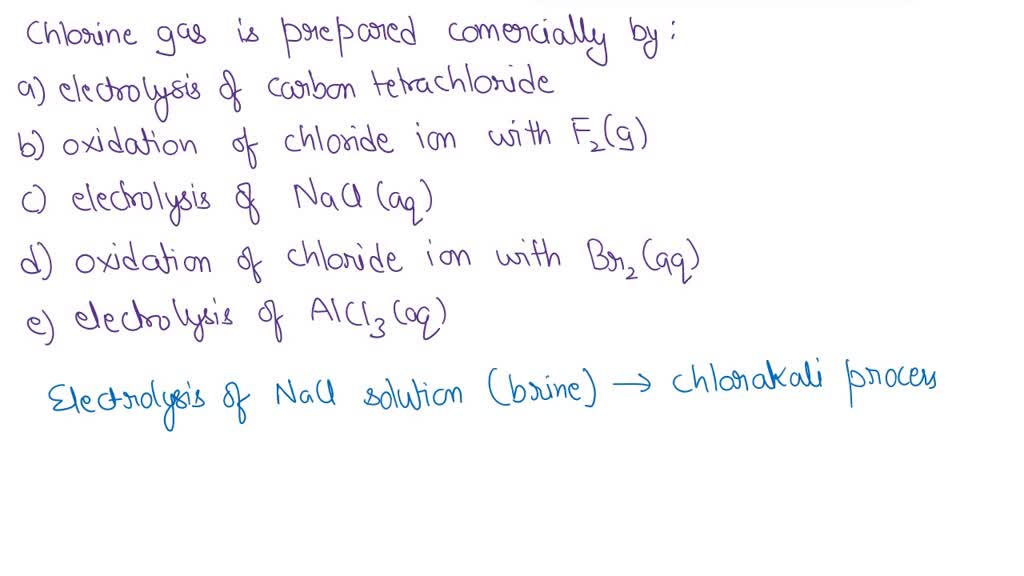 Chlorine gas is prepared comercially by:
a) electrolysis of carbon tetrachloride
b) oxidation of chloride ion with F₂(g)
c) electrolysis of NaCl (aq)
d) oxidation of chloride ion with Br₂(aq)
e) electrolysis of AlCl₃(aq)
Electrolysis of NaCl solution (brine) → chlorakali process